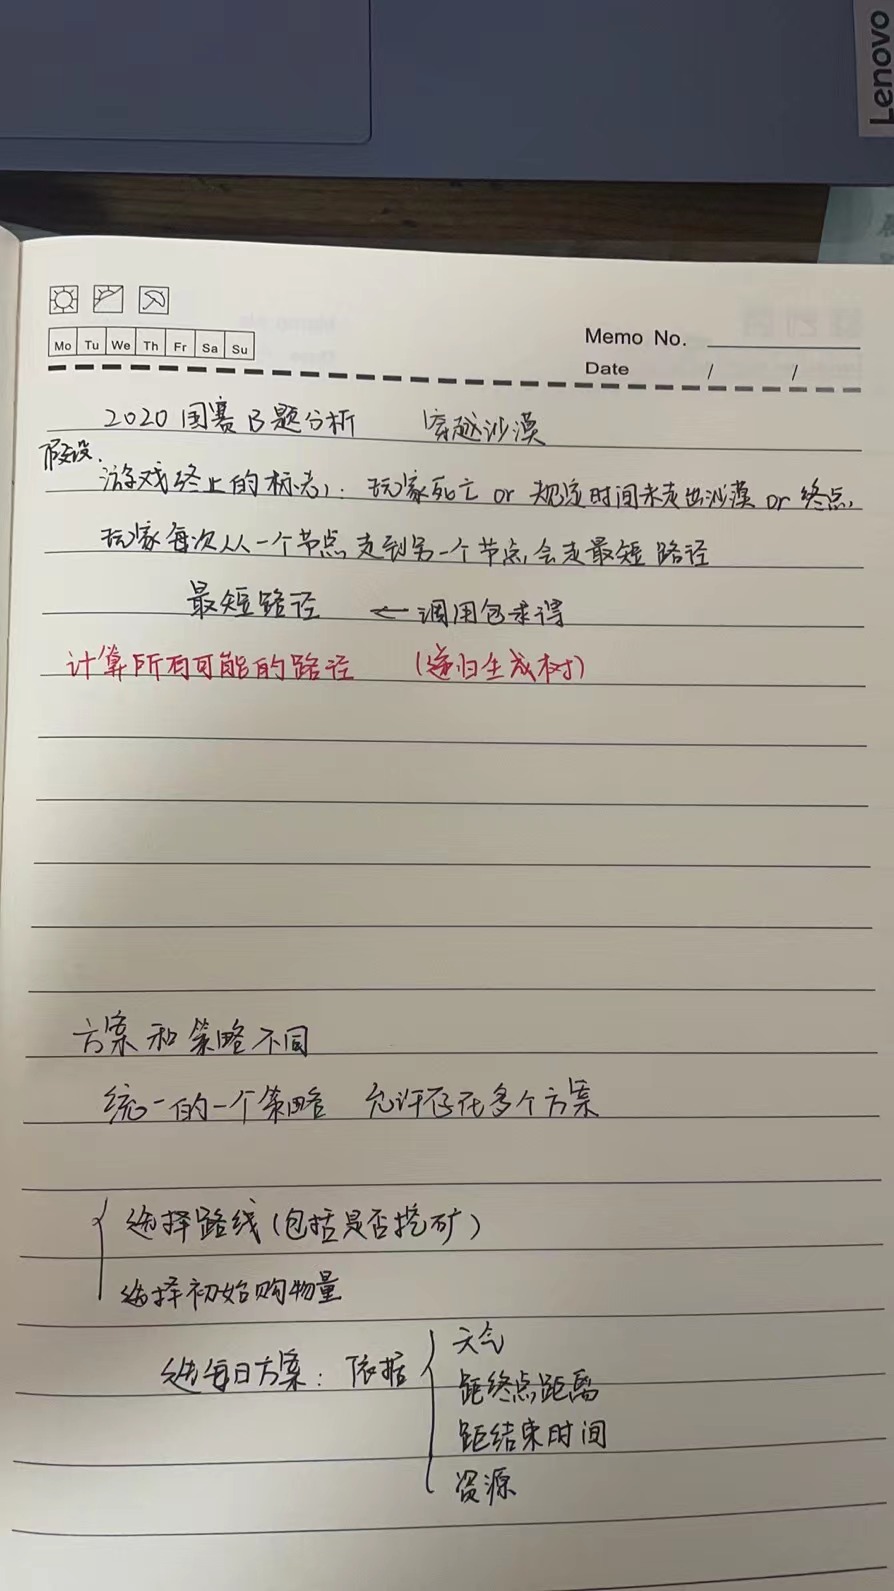 Lenovo
Mo Tu We Th Fr Sa Su
Memo No.
Date / /
2020国赛B题分析 穿越沙漠
假设.
游戏终止的标志: 玩家死亡 or 规定时间未走出沙漠 or 终点,
玩家每次从一个节点走到另一个节点,会走最短路径
最短路径 ← 调用包求得
计算所有可能的路径 (递归生成树)
方案和策略不同
统一的一个策略 允许存在多个方案
选择路线(包括是否挖矿)
选择初始购物量
选每日方案: 依据
天气
距终点距离
距结束时间
资源